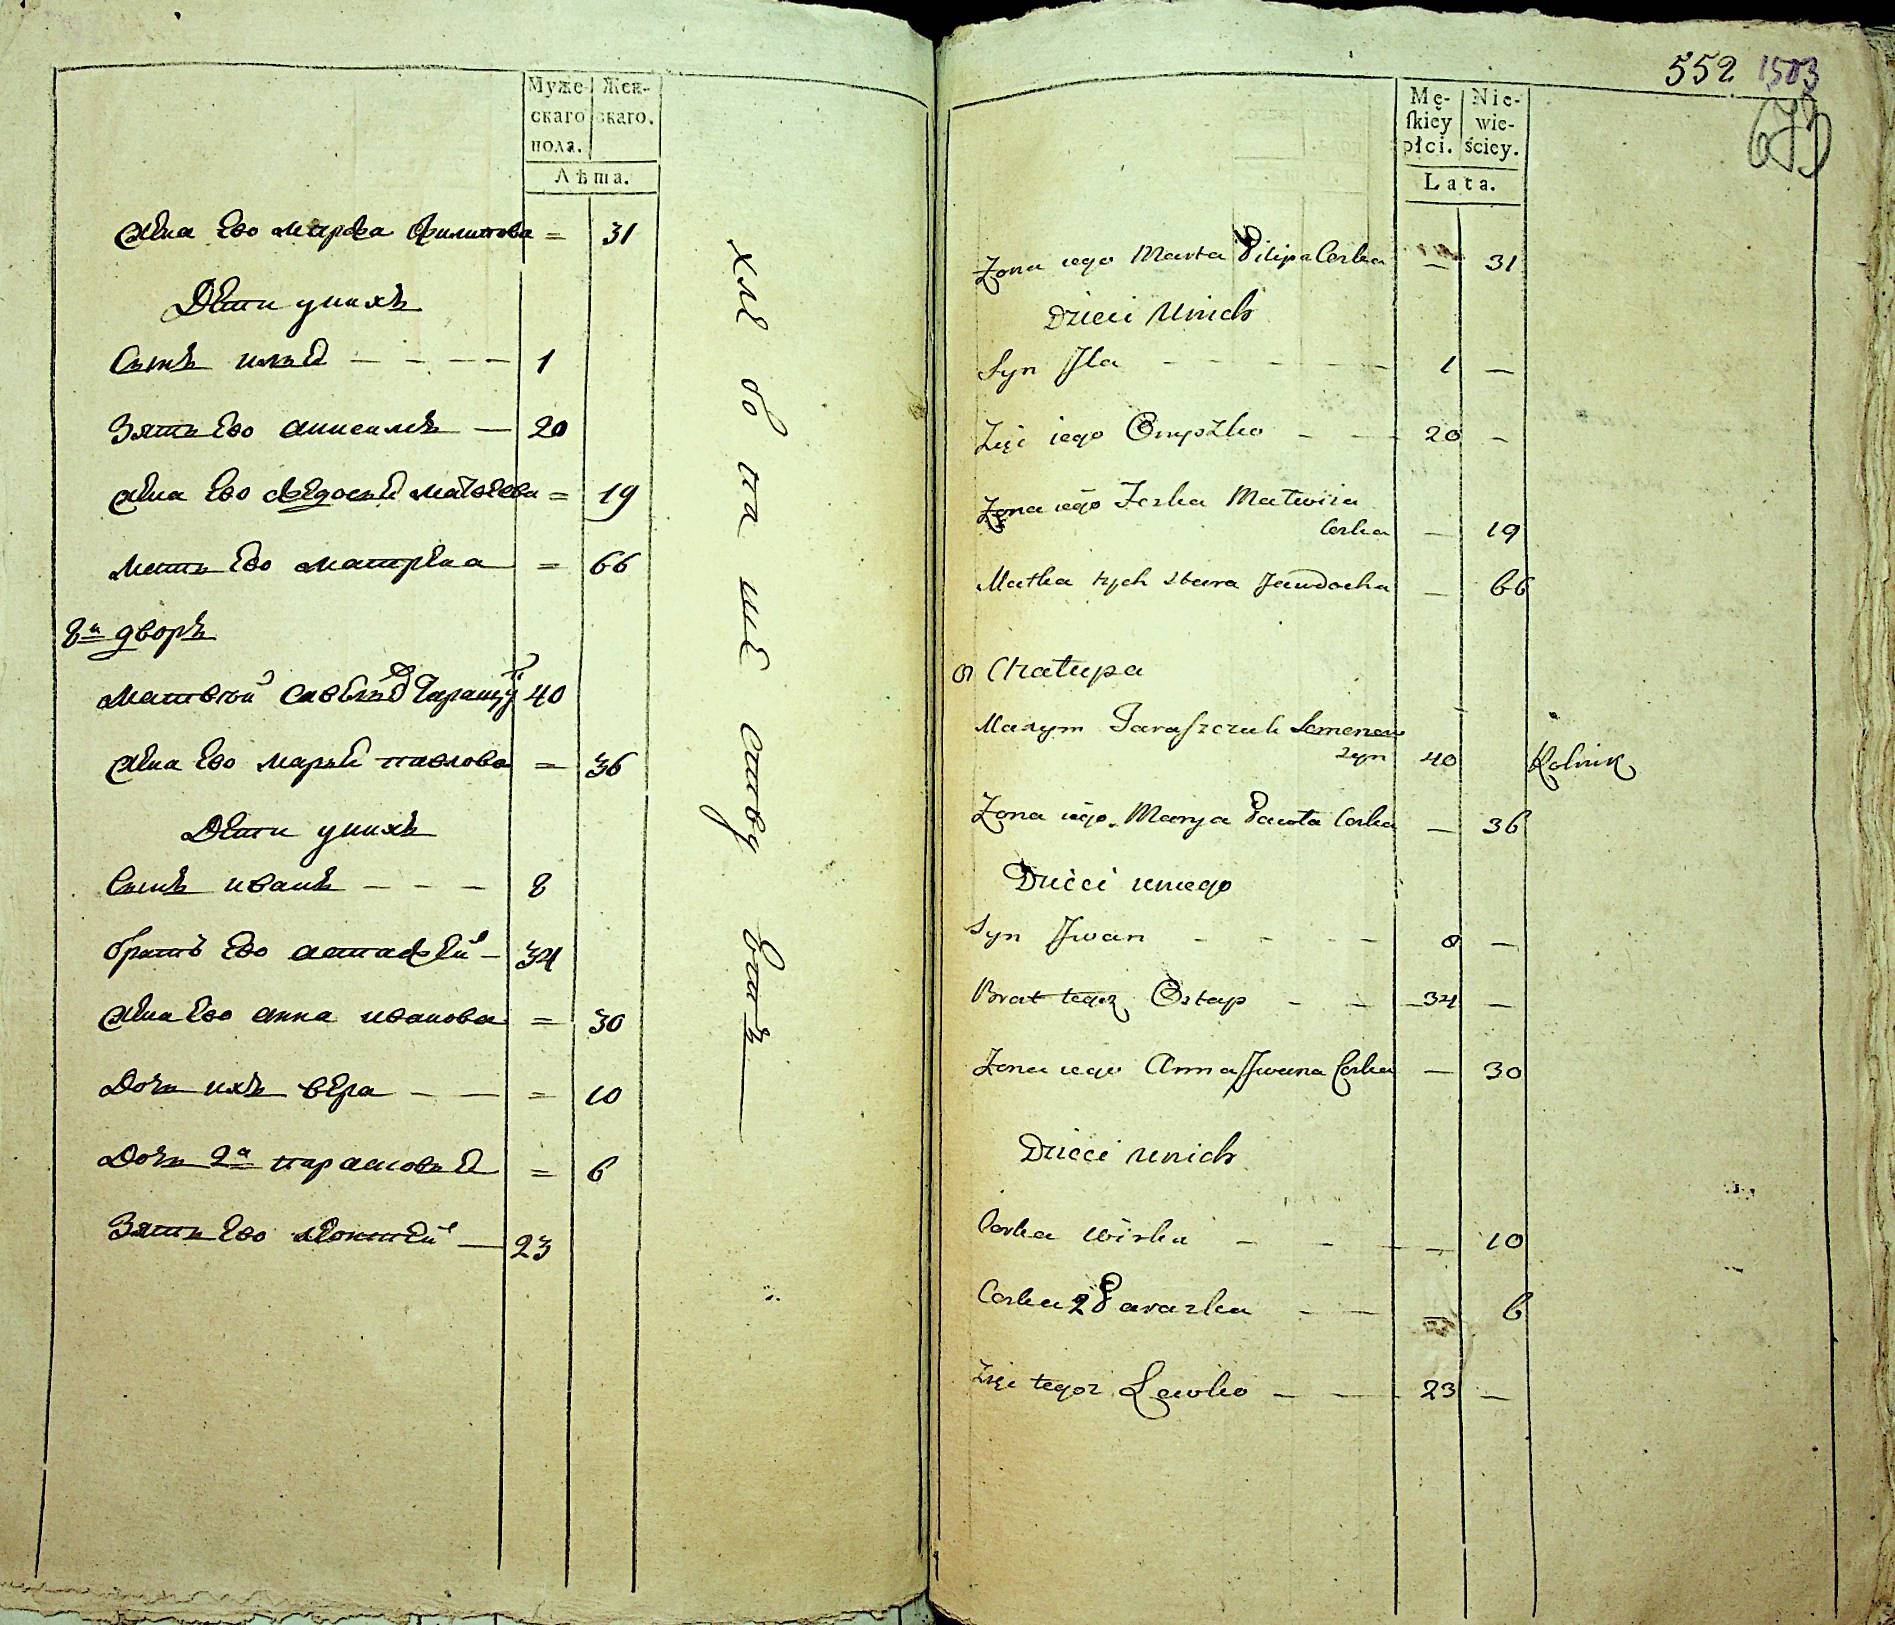 Муже- Жен-
скаго скаго.
пола.
Лѣта.
жена ево марфа филипова = 31
Дети унихъ
Сынъ илья — — — — 1
Зять ево анисимъ — 20
жена ево федосья матвеева = 19
мать ево матрена = 66
8й дворъ
матвей савельев Паращу 40
жена ево марья павлова = 36
Дети унихъ
Сынъ иванъ — — — 8
братъ ево астафей — 34
жена ево анна иванова = 30
Дочь ихъ вера — — = 10
Дочь 2я парасковья = 6
Зять ево — 23
552 1503
Mę- Nie-
ſkiey wie-
płci. ściey.
Lata.
Żona iego Marta Pilipa Corka — 31
Dzieci Unich
Syn Jla — — — — 1 —
Zięć iego Onyszko — — 20 —
Żona iego Feska Matwiia
Corka — 19
Matka tych stara Jawdocha — 66
8 Chałupa
Maxym Paraſzczuk Semenow
syn 40 Rolnik
Żona iego Marya Pawła Corka — 36
Dzieci uniego
Syn Jwan — — — — 8 —
Brat tegoż Ostap — — 34 —
Żona iego Anna Jwana Corka — 30
Dzieci unich
Corka Wirka — — — — 10
Corka 2 Paraska — — — 6
Zięć tegoż Lewko — — 23 —
хле бо па ше ставу